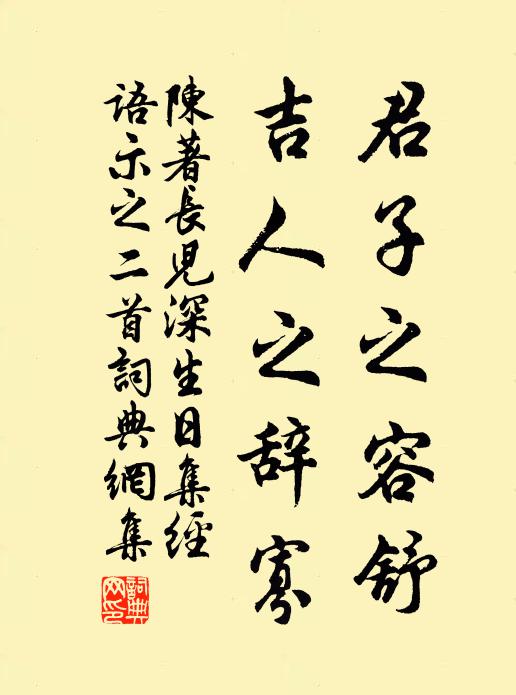 君子之容舒
吉人之辞寡
陳著長児深生日集經
語示之二首詞典網集
詞典网印